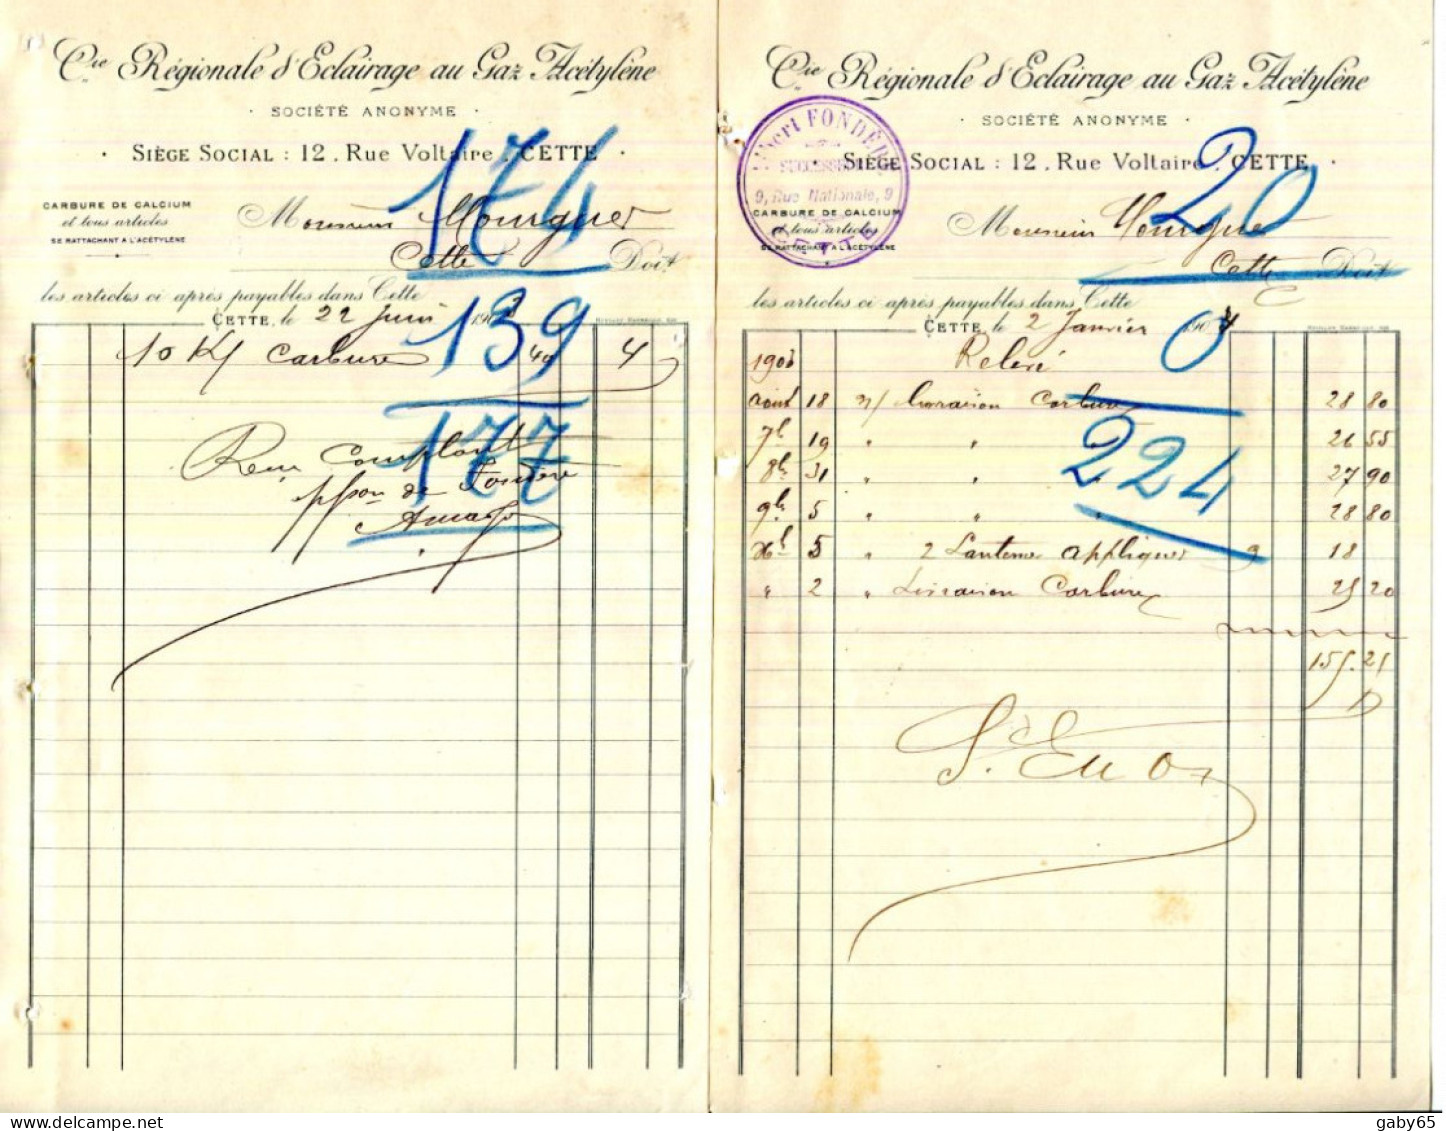 Cie Régionale d'Eclairage au Gaz Acétylène
· SOCIÉTÉ ANONYME ·
· SIÈGE SOCIAL : 12, Rue Voltaire, CETTE ·
174
CARBURE DE CALCIUM
et tous articles
SE RATTACHANT A L'ACÉTYLÈNE
Monsieur Mourgues
Cette Doit
les articles ci après payables dans Cette
CETTE, le 22 Juin 190
139
10 Kg Carbure 40 4
177
Reçu Comptant
ppon de Fondère
Cie Régionale d'Eclairage au Gaz Acétylène
· SOCIÉTÉ ANONYME ·
SIÈGE SOCIAL : 12, Rue Voltaire, CETTE ·
20
Henri FONDÈRE
SUCCESSEUR
9, Rue Nationale, 9
CETTE
CARBURE DE CALCIUM
et tous articles
SE RATTACHANT A L'ACÉTYLÈNE
Monsieur Mourgues
Cette Doit
les articles ci après payables dans Cette
CETTE, le 2 Janvier 1904
0
1903 Relevé
août 18 n/ livraison Carbure 28 80
7b 19 " " 26 55
224
8b 31 " " 27 90
9b 5 " " 28 80
Xb 5 " 2 Lanternes appliques 9 18
" 2 " Livraison Carbure 25 20
155.25
gaby65